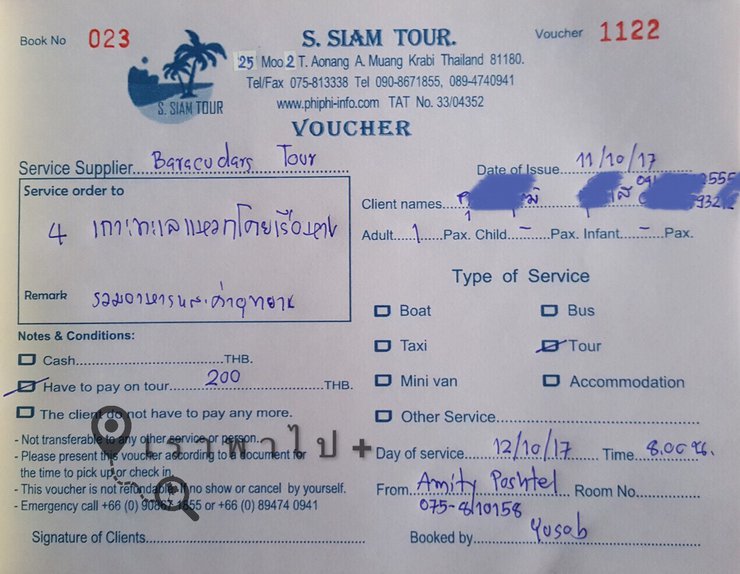 Book No 023
S. SIAM TOUR.
Voucher 1122
25 Moo 2 T. Aonang A. Muang Krabi Thailand 81180.
Tel/Fax 075-813338 Tel 090-8671855, 089-4740941
www.phiphi-info.com TAT No. 33/04352
S. SIAM TOUR
VOUCHER
Service Supplier Baracudars Tour
Date of Issue 11/10/17
Service order to
4 เกาะทะเลแหวกโดยเรือหาง
Remark รวมอาหารและค่าอุทยาน
Client names
Adult 1 Pax. Child - Pax. Infant - Pax.
Type of Service
Boat
Bus
Taxi
Tour
Mini van
Accommodation
Other Service
Notes & Conditions:
Cash THB.
Have to pay on tour 200 THB.
The client do not have to pay any more.
- Not transferable to any other service or person.
- Please present this voucher according to a document for
the time to pick up or check in.
- This voucher is not refundable if no show or cancel by yourself.
- Emergency call +66 (0) 90867 1855 or +66 (0) 89474 0941
เราพาไป +
Day of service 12/10/17 Time 8.00 น.
From Amity Poshtel Room No.
075-810158
Signature of Clients
Booked by Yusob